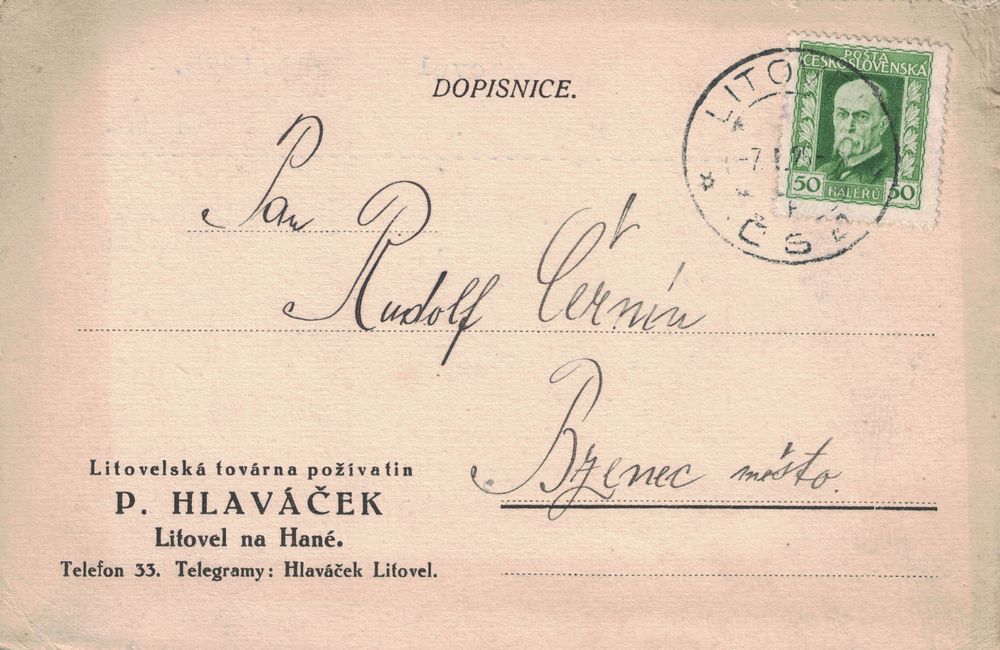 DOPISNICE.
POŠTA
ČESKOSLOVENSKÁ
50 HALÉŘŮ 50
LITO
ČS
Pan
Rudolf Černín
Bzenec město.
Litovelská továrna požívatin
P. HLAVÁČEK
Litovel na Hané.
Telefon 33. Telegramy: Hlaváček Litovel.